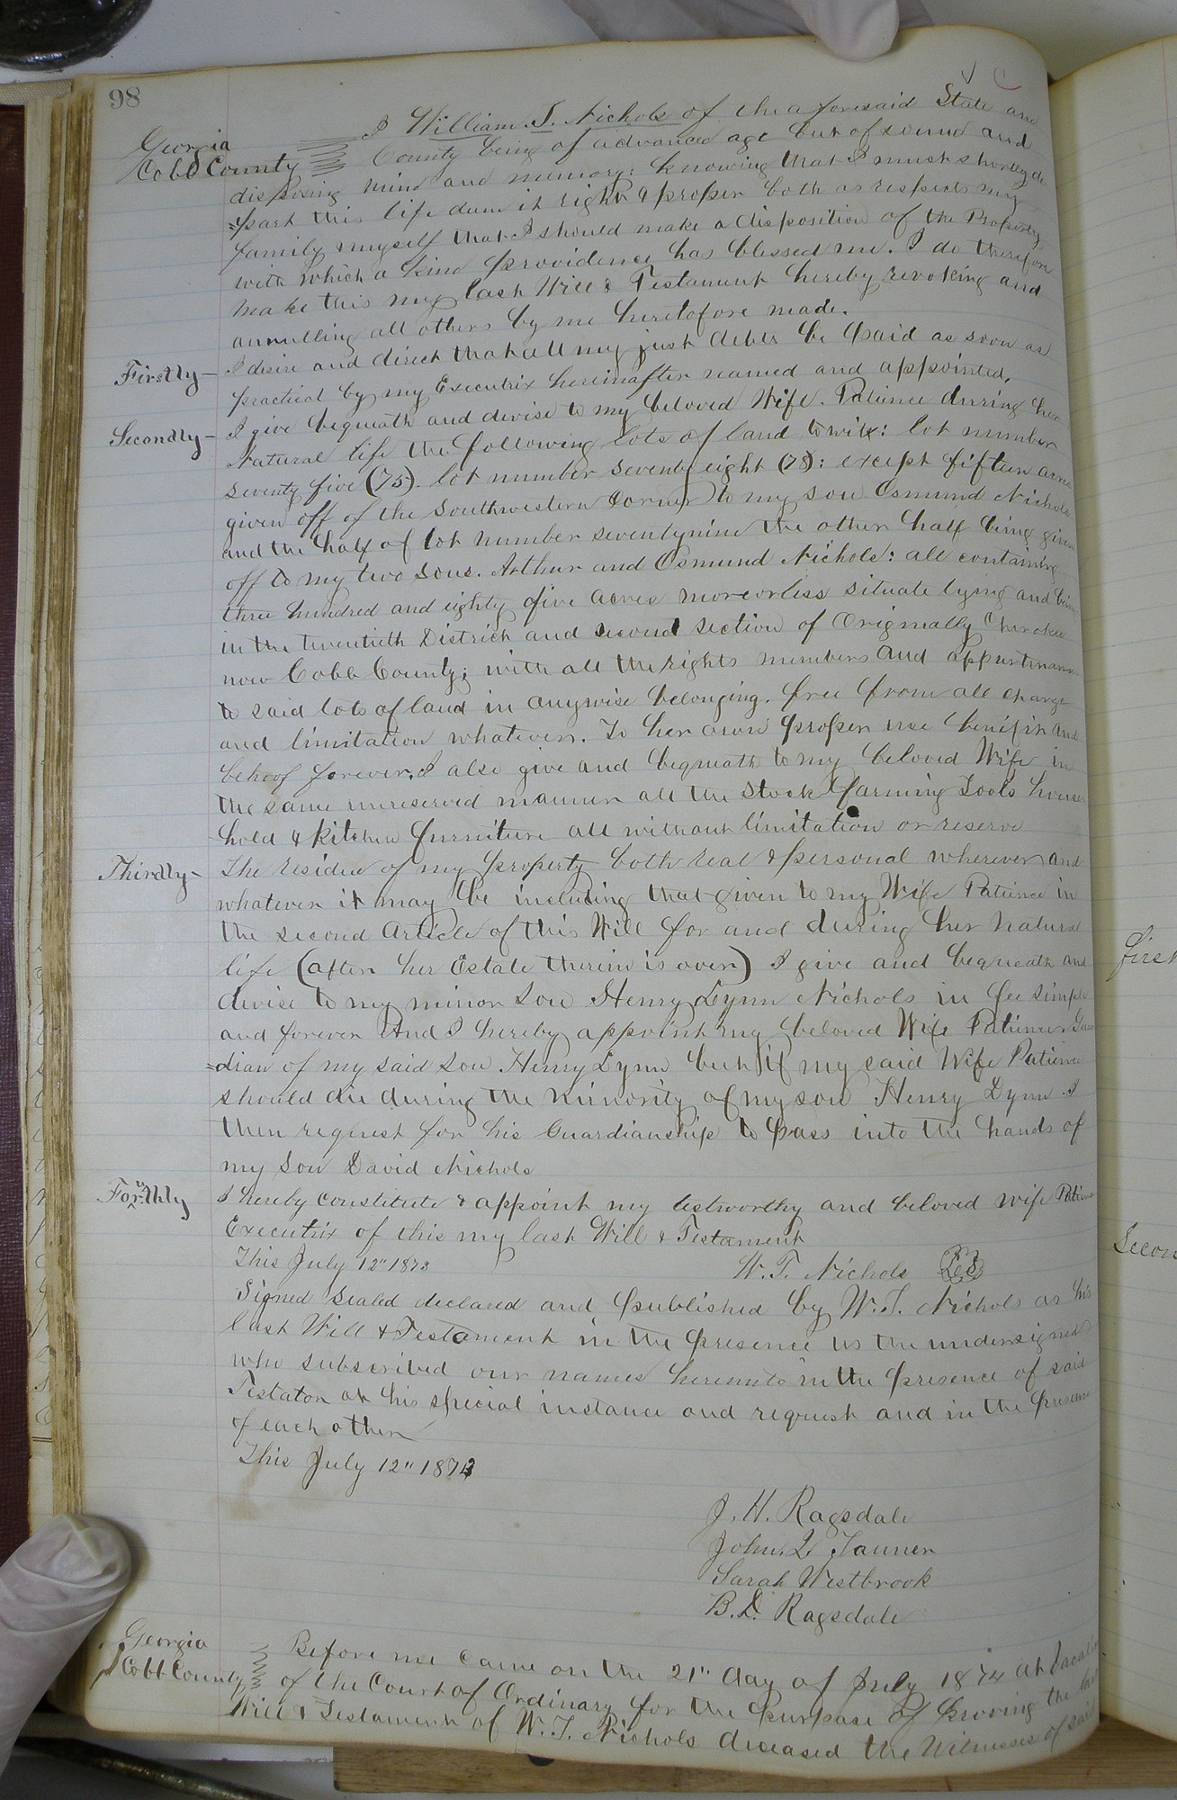 98
Georgia
Cobb County
I William. T. Nichols of the aforesaid State and
County being of advanced age but of sound and
disposing mind and memory: knowing that I must shortly de
=part this life deem it right & proper both as respects my
family & myself that I should make a disposition of the Property
with which a kind providence has blessed me. I do therefore
make this my last Will & Testament hereby revoking and
annulling all others by me heretofore made.
Firstly— I desire and direct that all my just debts be paid as soon as
practical by my Executrix hereinafter named and appointed.
Secondly— I give bequeath and devise to my beloved Wife. Patience during her
Natural life the following lots of land to wit: lot number
seventy five (75). lot number seventy eight (78): except fifteen acres
given off of the Southwestern Corner to my son Osmund Nichols
and the half of lot number seventynine the other half being given
off to my two Sons. Arthur and Osmund Nichols: all containing
three hundred and eighty five acres more or less situate lying and being
in the twentieth District and second section of Originally Cherokee
now Cobb County; with all the rights members and appurtenances
to said lots of land in anywise belonging. free from all charge
and limitation whatever. To her own proper use benifit and
behoof forever. I also give and bequeath to my beloved Wife in
the same unreserved manner all the stock farming Tools house
hold & kitchen furniture all without limitation or reserve
Thirdly— The residue of my property both real & personal wherever and
whatever it may be including that given to my Wife Patience in
the second Article of this Will for and during her natural
life (after her Estate therein is over) I give and bequeath and
devise to my minor son Henry Lynn Nichols in fee simple
and forever And I hereby appoint my beloved Wife Patience Guar
=dian of my said son Henry Lynn but if my said Wife Patience
should die during the minority of my son Henry Lynn I
then request for his Guardianship to pass into the hands of
my son David Nichols
Forthly u I hereby constitute & appoint my testworthy and beloved wife Patience
Executrix of this my last Will & Testament
This July 12" 1873
W. T. Nichols LS
Signed sealed declared and published by W. T. Nichols as his
last Will & Testament in the presence us the undersigned
who subscribed our names hereunto in the presence of said
Testator at his special instance and request and in the presence
of each other
This July 12" 1873
J. H. Ragsdale
John. L Tanner
Sarah Westbrook
B. D. Ragsdale
Georgia
Cobb County
Before me came on the 21" day of July 1874 at
of the Court of Ordinary for the purpose of proving the last
Will & Testament of W. T. Nichols deceased the Witnesses of said
first
Secon